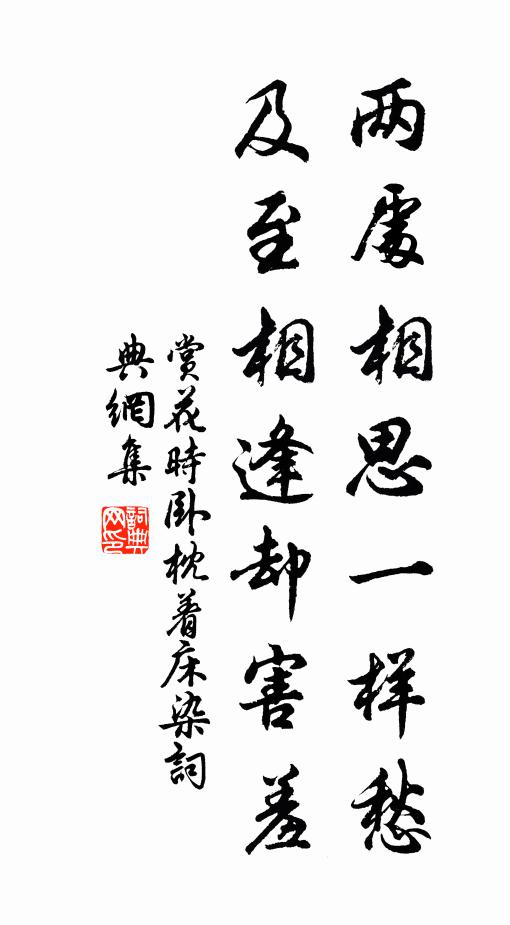 两處相思一样愁
及至相逢却害羞
赏花時卧枕着床染詞
典網集
詞典
网印